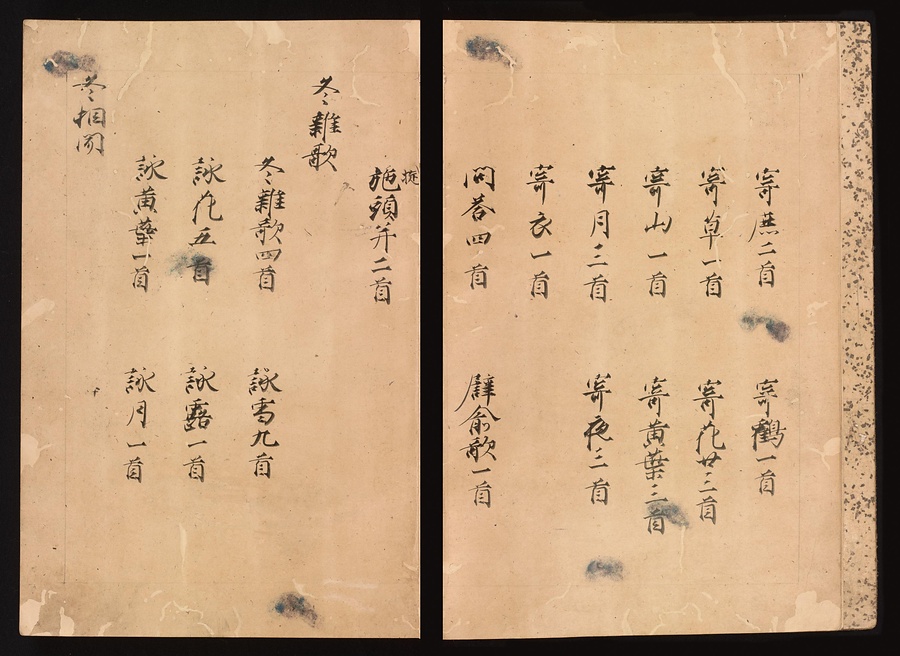 寄鹿二首　寄鶴一首
寄草一首　寄花廿三首
寄山一首　寄黄葉三首
寄月三首　寄夜三首
寄衣一首
問荅四首　辟俞歌一首
施頭并二首
冬雜歌
冬雜歌四首　詠雪九首
詠花五首　詠露一首
詠黄葉一首　詠月一首
冬相聞